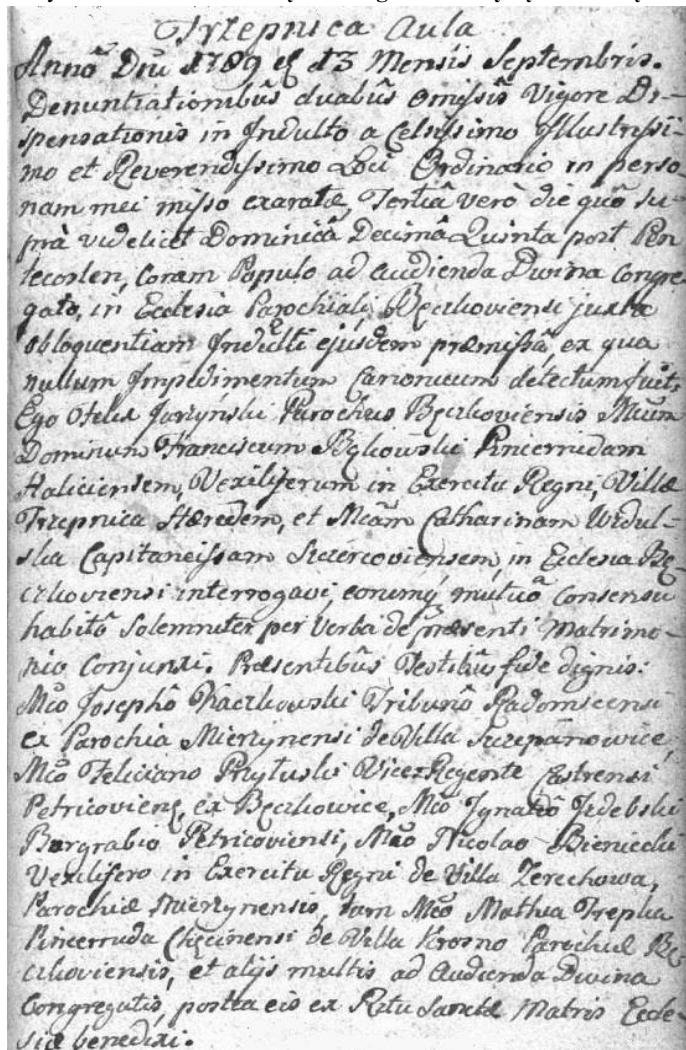 Trzepnica Aula
Anno Dni 1789 et 13 Mensis Septembris.
Denuntiationibus duabus omissis Vigore Di-
spensationis in Indulto a Celsissimo Illustrissi-
mo et Reverendissimo Loci Ordinario in perso-
nam mei misso exaratae, Tertiâ verò die quô su-
prà videlicet Dominicâ Decimâ Quinta post Pen
tecosten, coram Populo ad audienda Divina congre-
gato, in Ecclesia Parochiali Bęczkoviensi juxta
obloquentiam Indulti ejusdem praemissâ, ex qua
nullum Impedimentum Canonicum detectum fuit,
Ego Felix Jarzyński Parochus Bęczkoviensis Mcum
Dominum Franciscum Bykowski Pincernidam
Haliciensem, Vexiliferum in Exercitu Regni, Villae
Trzepnica Haeredem, et Mcam Catharinam Widul-
ska Capitaneissam Szczercoviensem, in Ecclesia Bę-
czkoviensi interrogavi, eorumq mutuô consensu
habitô Solemniter per Verba de praesenti Matrimo-
nio Conjunxi. Praesentibus Testibus fide dignis:
Mco Josephô Kaczkowski Tribunô Radomscensi
ex Parochia Mierzynensi de Villa Szczepanowice,
Mco Feliciano Przyłuski Vice Regente Castrensi
Petricoviens, ex Bęczkowice, Mco Ignatio Izdebski
Burgrabio Petricoviensi, Mco Nicolao Bieniecki
Vexilifero in Exercitu Regni de Villa Zerechowa,
Parochiae Mierzynensis, tam Mco Mathia Trepka
Pincernida Chęcinensi de Villa Krosno Parochiae Bę-
czkoviensis, et alijs multis ad Audienda Divina
Congregatis, postea eis ex Ritu Sanctae Matris Eccle-
siae benedixi.